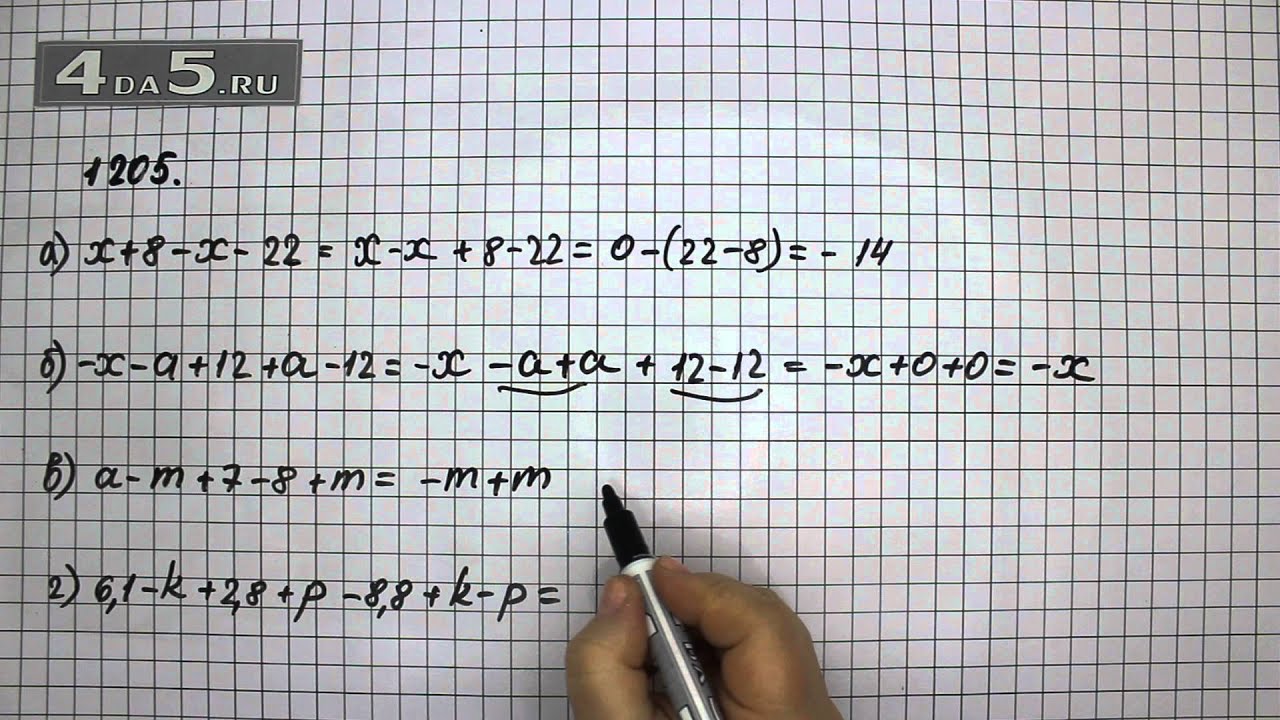 4DA5.RU
1205.
а) x+8-x-22 = x-x+8-22 = 0-(22-8) = -14
б) -x-a+12+a-12 = -x -a+a + 12-12 = -x+0+0 = -x
в) a-m+7-8+m = -m+m
г) 6,1-k+2,8+p-8,8+k-p =